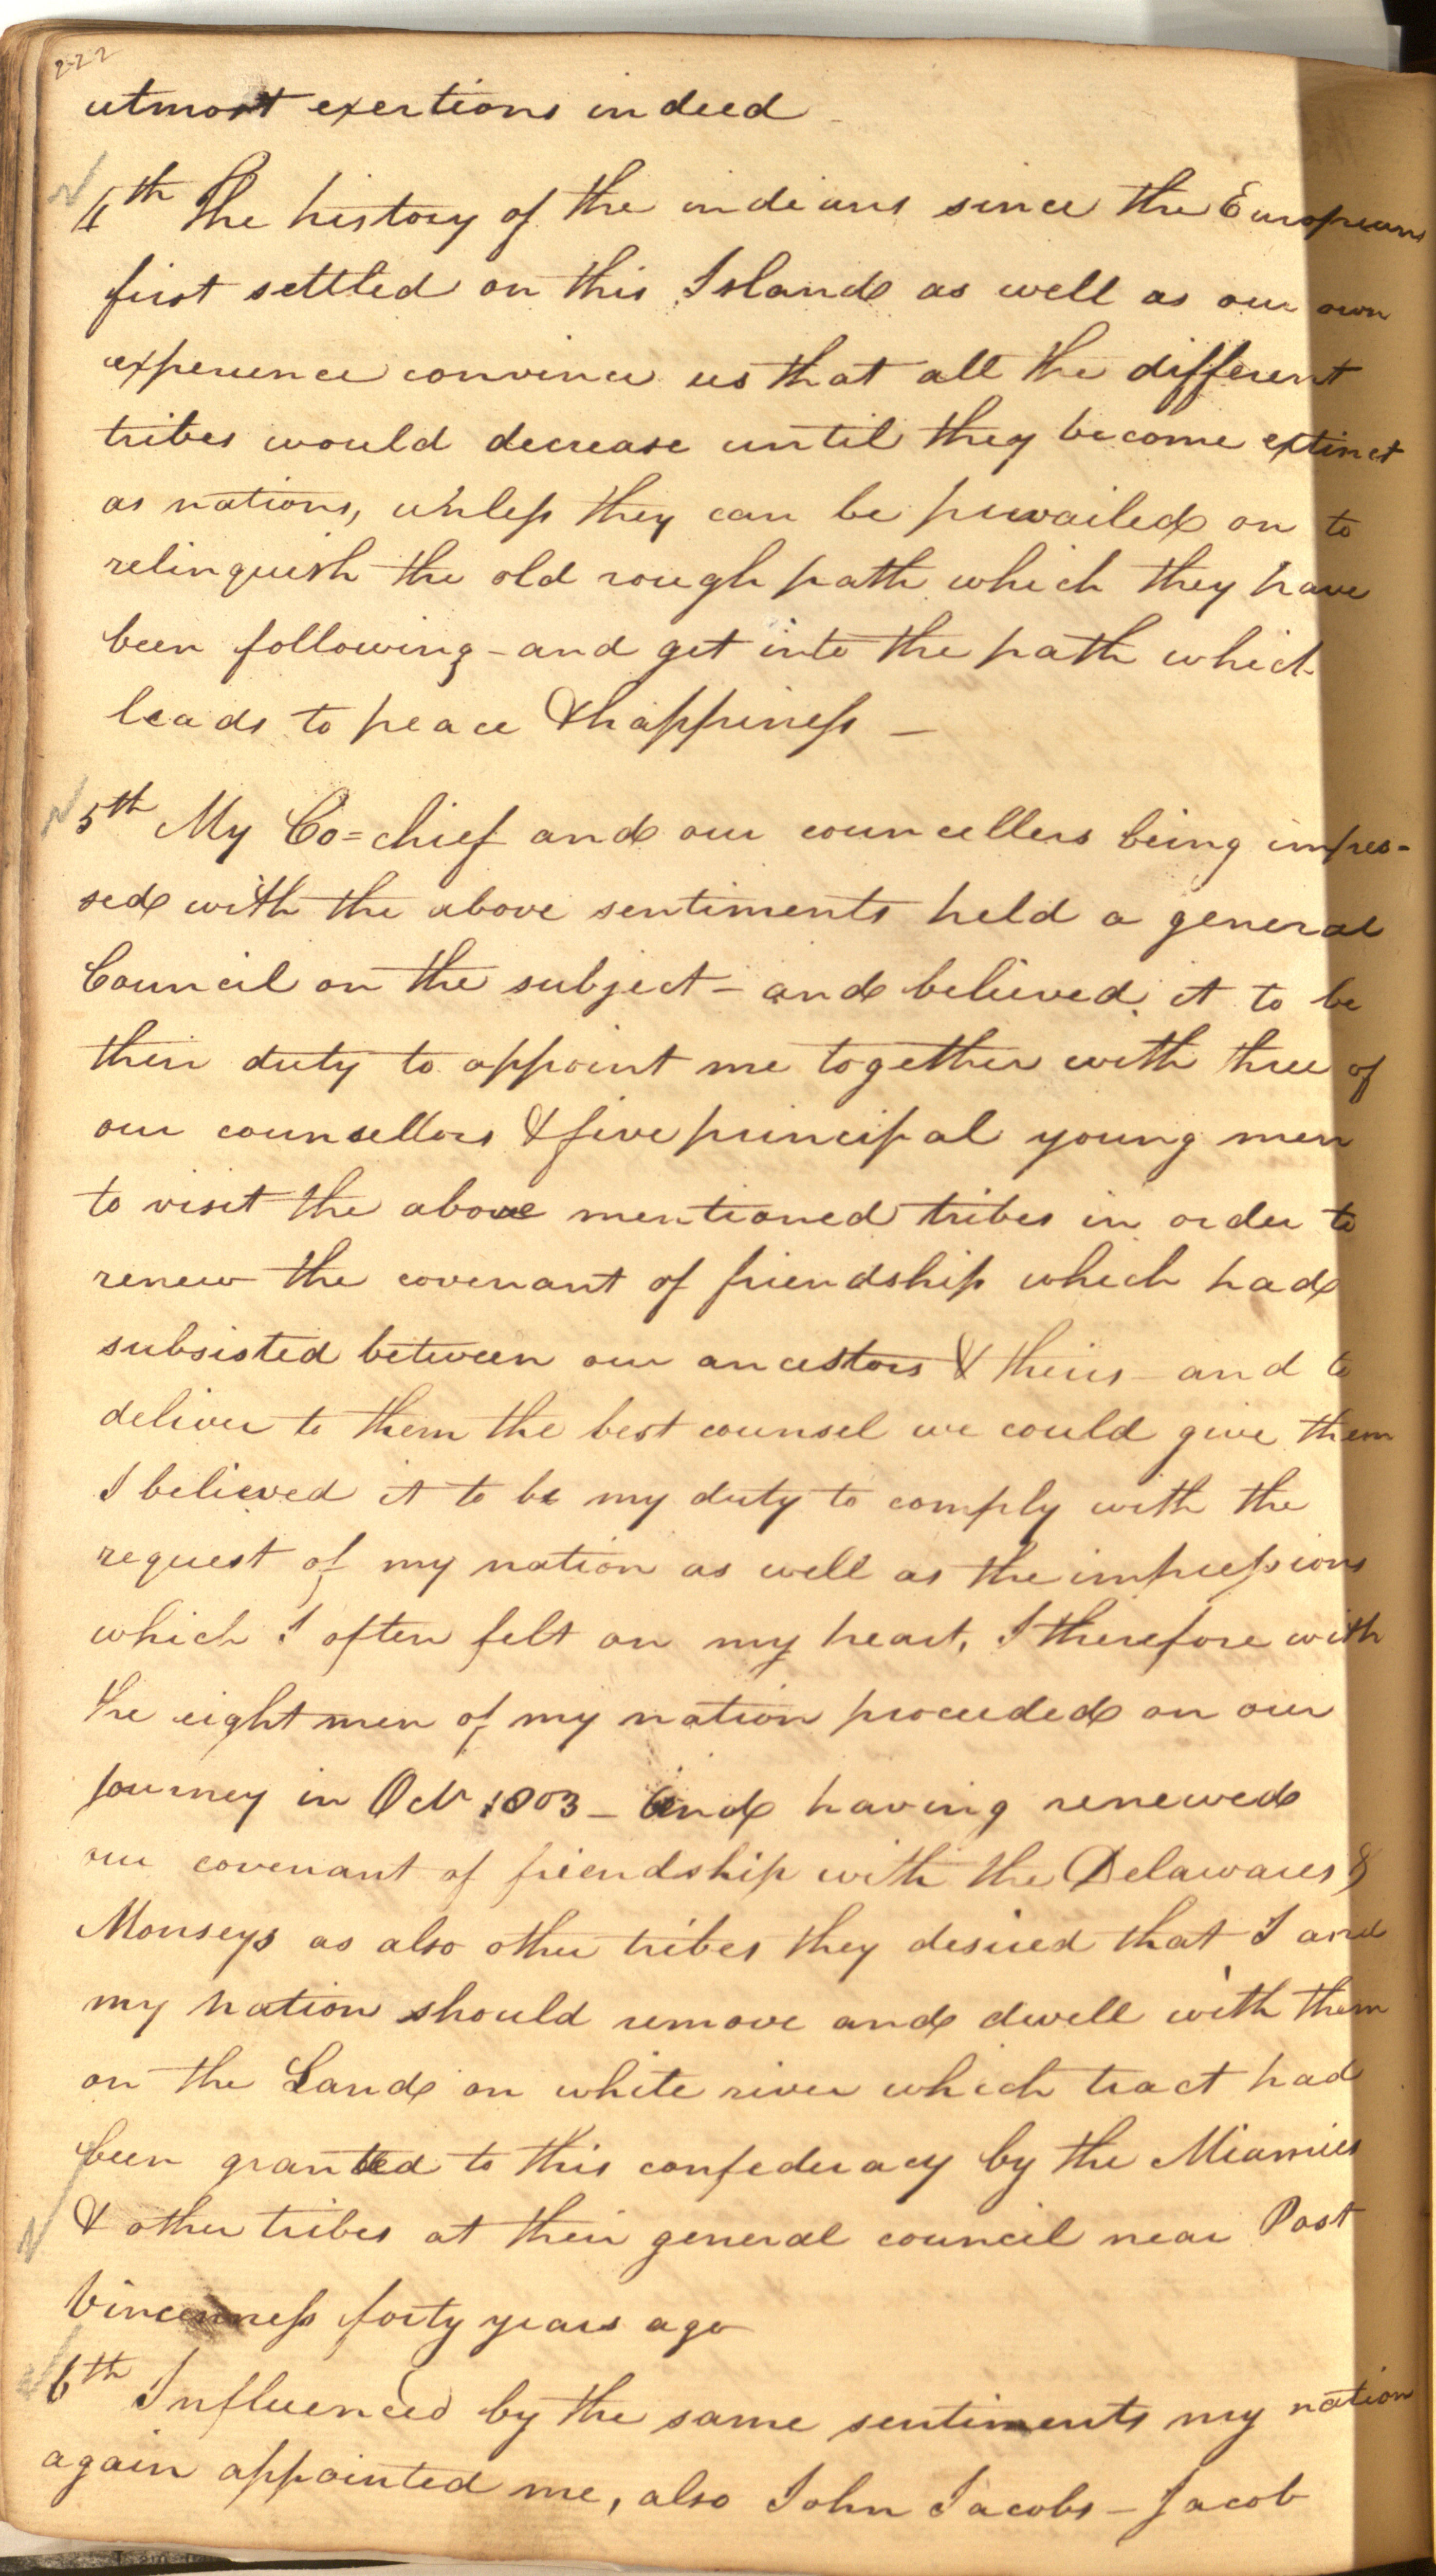 222
utmost exertions indeed
4th The history of the indians since the Europeans
first settled on this Island as well as our own
experience convince us that all the different
tribes would decrease until they become extinct
as nations, unless they can be prevailed on to
relinquish the old rough path which they have
been following - and get into the path which
leads to peace & happiness —
5th My Co=chief and our councellers being impres-
sed with the above sentiments held a general
Council on the subject - and believed it to be
their duty to appoint me together with three of
our counsellors & five principal young men
to visit the above mentioned tribes in order to
renew the covenant of friendship which had
subsisted between our ancestors & theirs - and to
deliver to them the best counsel we could give them
I believed it to be my duty to comply with the
request of my nation as well as the impressions
which I often felt on my heart, I therefore with
the eight men of my nation proceeded on our
journey in Octr 1803 - And having renewed
our covenant of friendship with the Delawares &
Monseys as also other tribes they desired that I and
my nation should remove and dwell with them
on the Land on white river which tract had
been granted to this confederacy by the Miamies
& other tribes at their general council near Post
Vincenness forty years ago
6th Influenced by the same sentiments my nation
again appointed me, also John Jacobs - Jacob